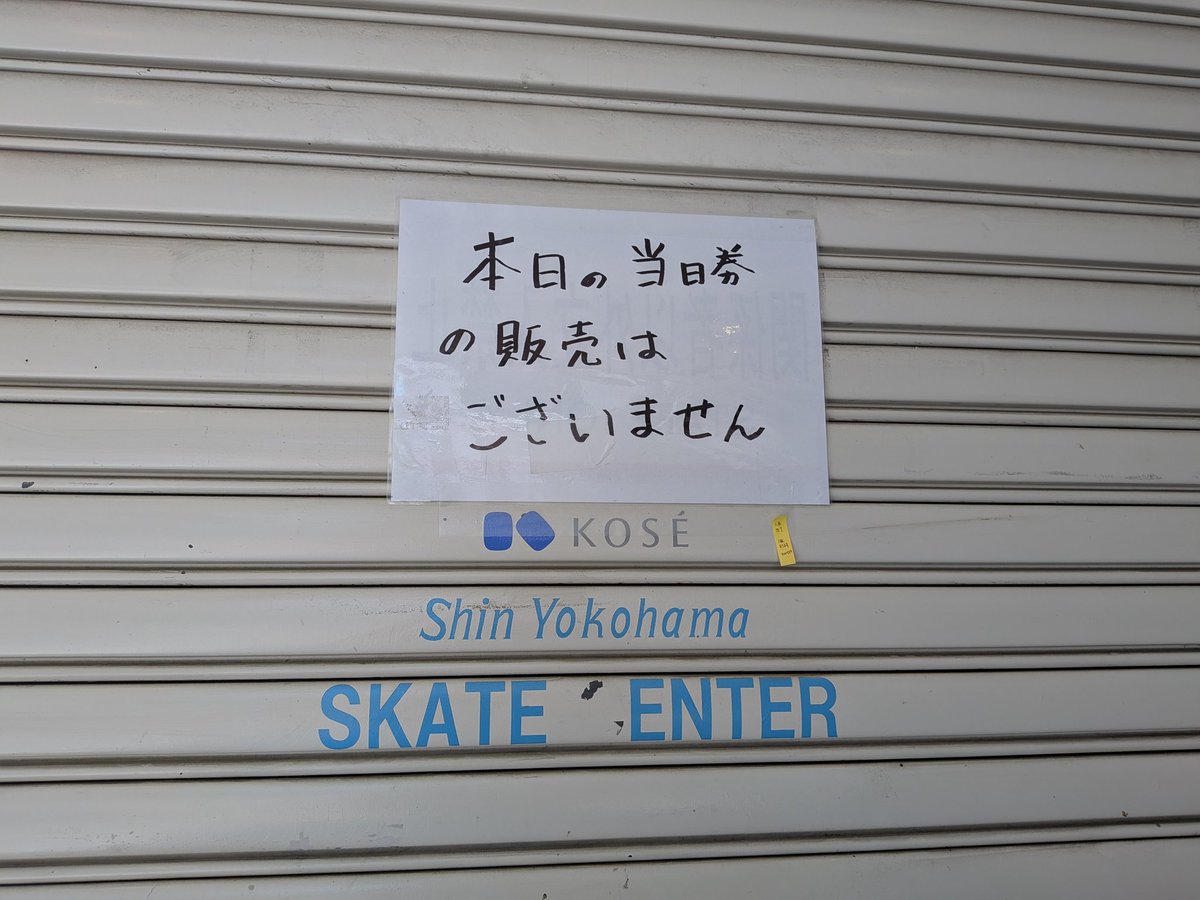 本日の当日券
の販売は
ございません
KOSÉ
Shin Yokohama
SKATE ENTER